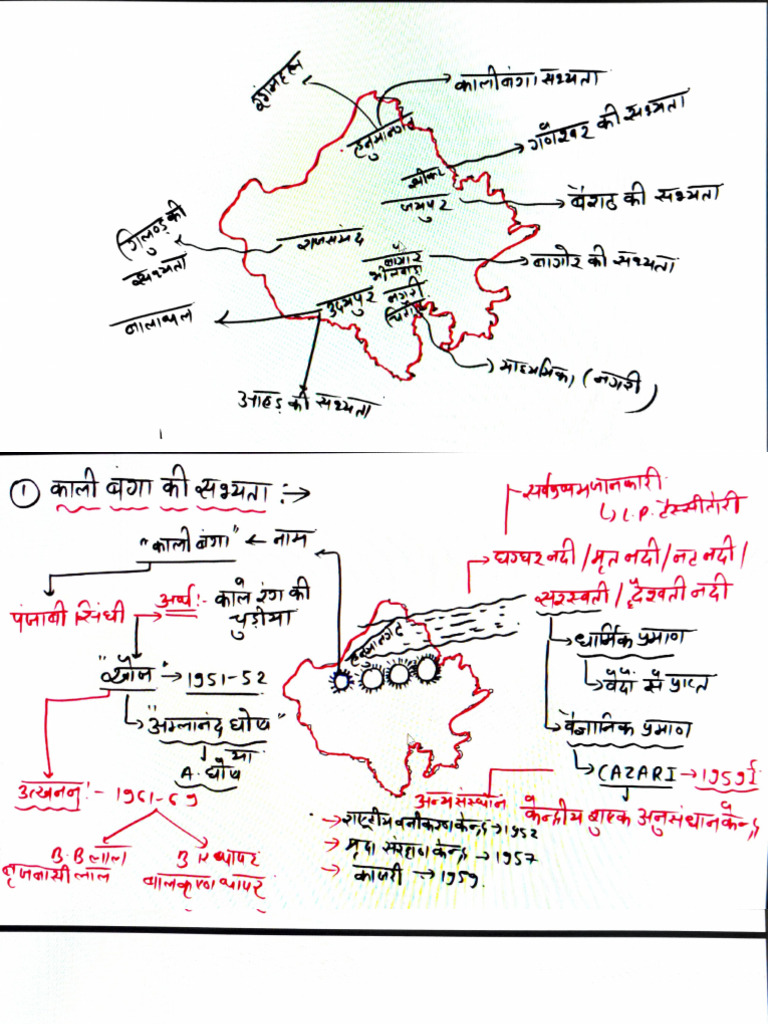 रंगमहल
कालीबंगा सभ्यता
हनुमानगढ़
गणेश्वर की सभ्यता
सीकर
जयपुर
बैराठ की सभ्यता
गिलुण्ड की
सभ्यता
राजसमंद
बागोर
भीलवाड़ा
बागोर की सभ्यता
बालाथल
उदयपुर
नगरी
माध्यमिका (नगरी)
आहड़ की सभ्यता
① काली बंगा की सभ्यता :→
सर्वप्रथम जानकारी
L.P. टैस्सीटोरी
"काली बंगा" ← नाम
घग्घर नदी / मृत नदी / नट नदी /
सरस्वती / दृैशवती नदी
पंजाबी सिंधी → अर्थ :- काले रंग की
चुड़ीया
हनुमानगढ़
धार्मिक प्रमाण
वेदों से प्राप्त
"खोज" → 1951-52
"अमलानंद घोष"
या
A. घोष
वैज्ञानिक प्रमाण
CAZARI → 1959ई
उत्खनन :- 1961-69
अन्य संस्थान
केन्द्रीय शुष्क अनुसंधान केन्द्र
→ राष्ट्रीय वनीकरण केन्द्र → 1952
→ मृदा संरक्षण केन्द्र → 1957
→ काजरी → 1959.
B.B लाल
बृजबासी लाल
B K थापर
बालकृष्ण थापर